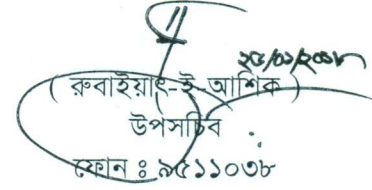 ২৫/০১/২০১৮
( রুবাইয়াৎ-ই-আশিক )
উপসচিব
ফোন ঃ ৯৫১১০৩৮